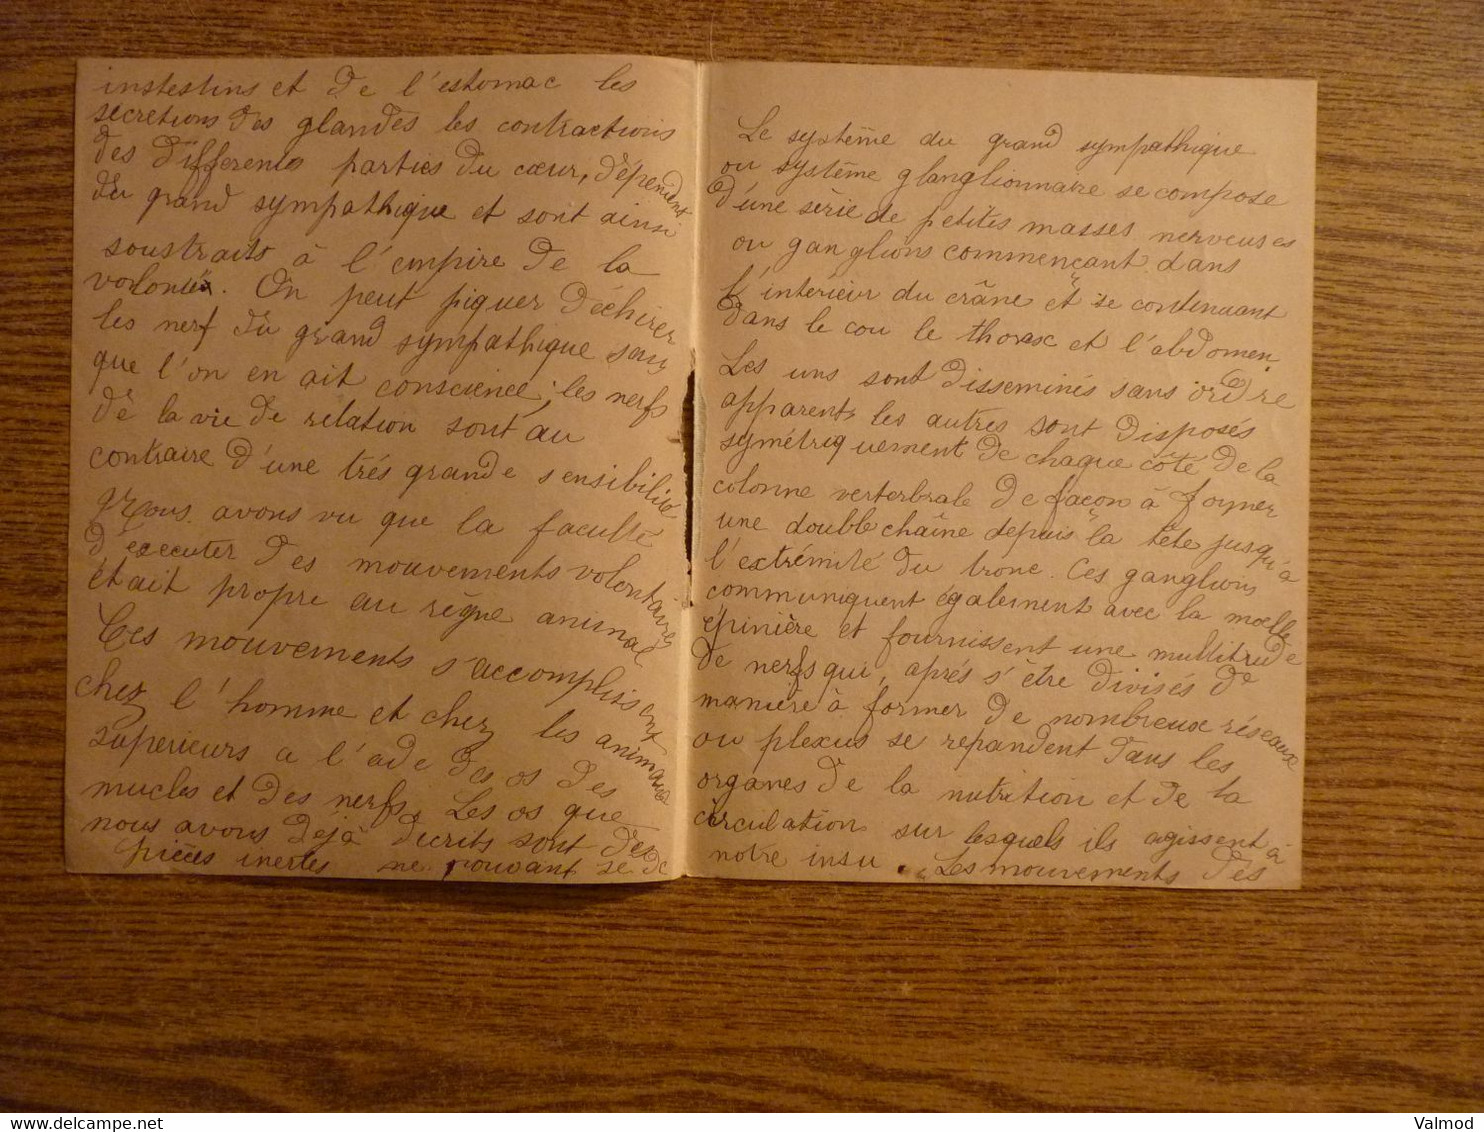 instestins et de l'estomac les
secretions des glandes les contractions
des differents parties du cœur, dépendent
du grand sympathique et sont ainsi
soustraits à l'empire de la
volonté. On peut piquer déchirer
les nerf du grand sympathique sans
que l'on en ait conscience; les nerfs
de la vie de relation sont au
contraire d'une très grande sensibilité
Nous avons vu que la faculté
d'éxecuter des mouvements volontaires
était propre au règne animal
Ces mouvements s'accomplissent
chez l'homme et chez les animaux
superieurs a l'aide des os des
mucles et des nerfs. Les os que
nous avons déjà decrits sont des
pièces inertes ne pouvant se de
Le système du grand sympathique
ou système glanglionnaire se compose
d'une série de petites masses nerveuses
ou ganglions commençant dans
l'interieur du crâne et se continuant
dans le cou le thorax et l'abdomen.
Les uns sont disseminés sans ordre
apparent, les autres sont disposés
symétriquement de chaque côté de la
colonne verterbrale de façon à former
une double chaîne depuis la tête jusqu'à
l'extrémité du tronc. Ces ganglions
communiquent également avec la moelle
épinière et fournissent une multitude
de nerfs qui, aprés s'être divisés de
manière à former de nombreux réseaux
ou plexus se repandent dans les
organes de la nutrition et de la
circulation sur lesquels ils agissent à
notre insu. Les mouvements des
delcampe.net
Valmod